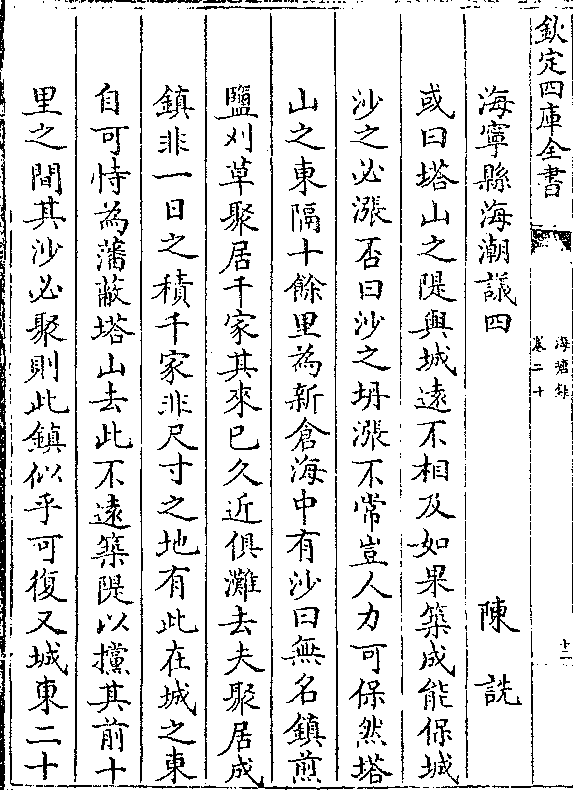 欽定四庫全書
海塘錄
卷二十
十二
海寧縣海潮議四　陳詵
或曰塔山之隄與城遠不相及如果築成能保城
沙之必漲否曰沙之坍漲不常豈人力可保然塔
山之東隔十餘里為新倉海中有沙曰無名鎮煎
鹽刈草聚居千家其來已久近俱灘去夫聚居成
鎮非一日之積千家非尺寸之地有此在城之東
自可恃為藩蔽塔山去此不遠築隄以攩其前十
里之間其沙必聚則此鎮似乎可復又城東二十